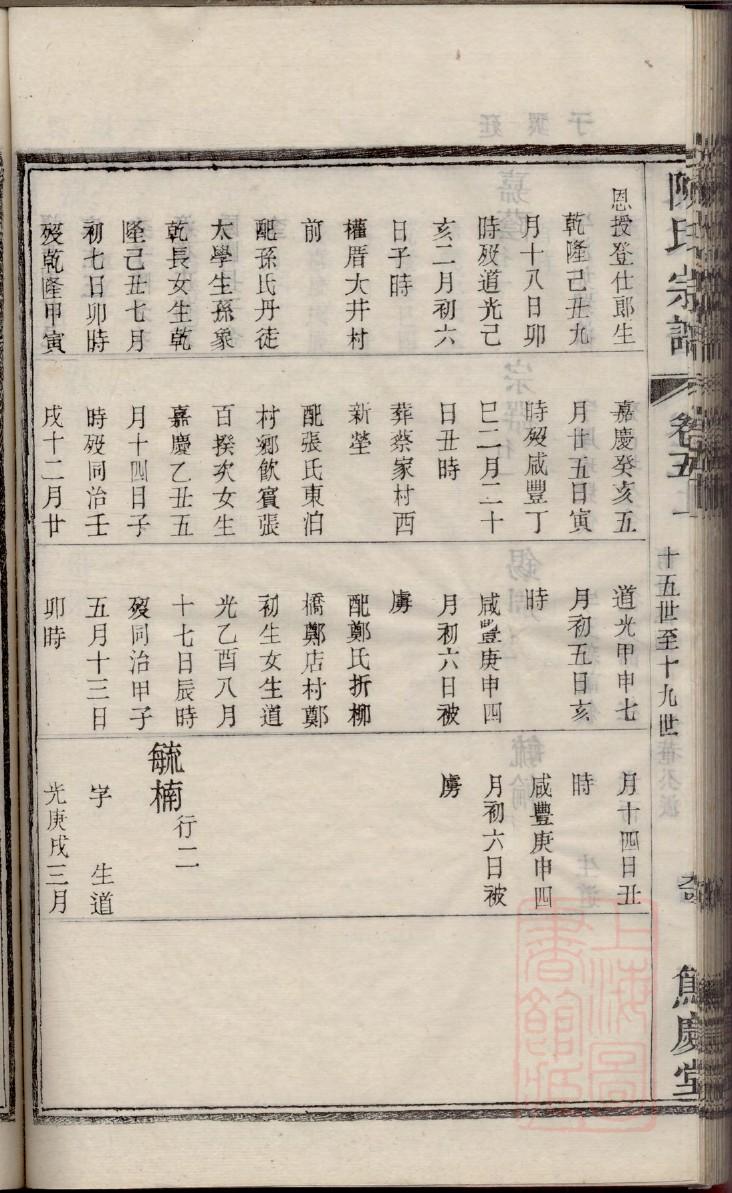 陳氏宗譜
卷五
十五世至十九世
恩授登仕郎生
乾隆己丑九
月十八日卯
時歿道光己
亥二月初六
日子時
權厝大井村
前
配孫氏丹徒
太學生孫象
乾長女生乾
隆己丑七月
初七日卯時
歿乾隆甲寅
嘉慶癸亥五
月廿五日寅
時歿咸豐丁
巳二月二十
日丑時
葬蔡家村西
新塋
配張氏東泊
村鄉飲賓張
百揆次女生
嘉慶乙丑五
月十四日子
時歿同治壬
戌十二月廿
道光甲申七
月初五日亥
時
咸豐庚申四
月初六日被
虜
配鄭氏折柳
橋鄭店村鄭
初生女生道
光乙酉八月
十七日辰時
歿同治甲子
五月十三日
卯時
月十四日丑
時
咸豐庚申四
月初六日被
虜
毓楠 行二
字 生道
光庚戌三月
上海圖書館藏